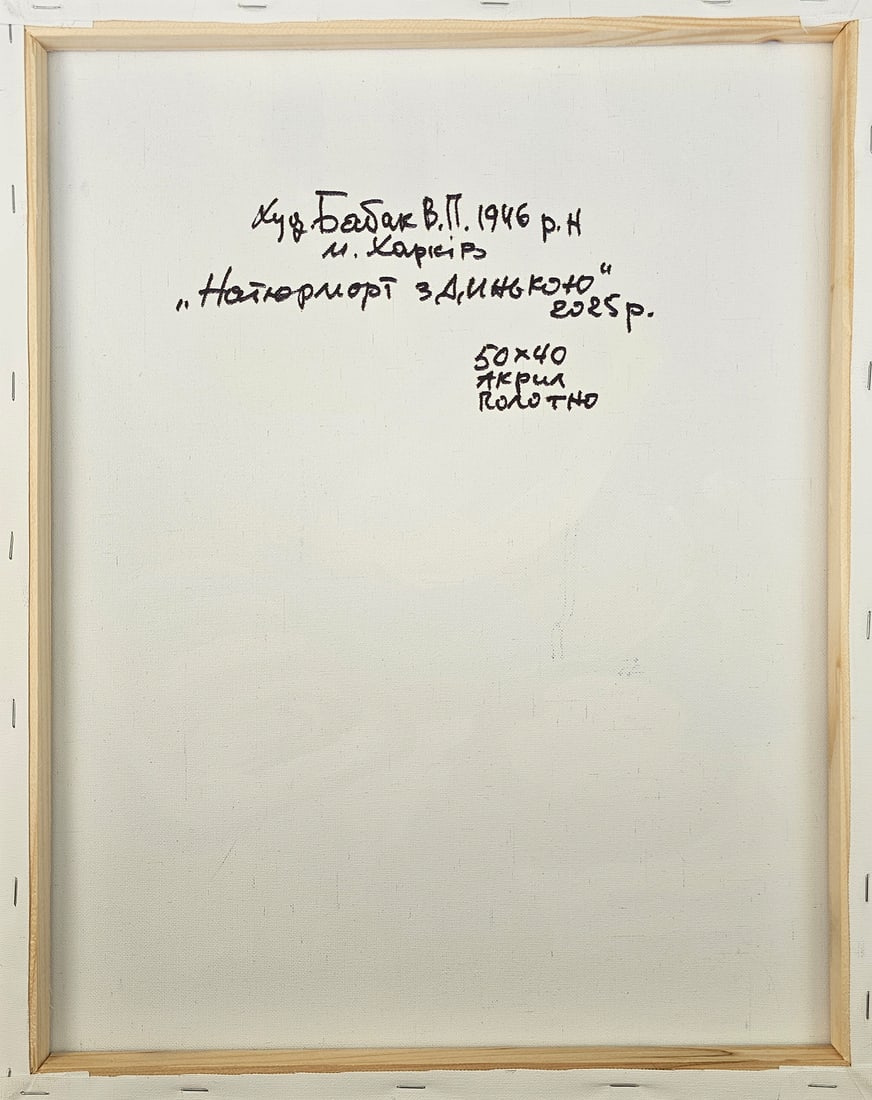 Худ. Бабак В.П. 1946 р.н
м. Харків
„Натюрморт з динькою“
2025 р.
50×40
акрил
полотно